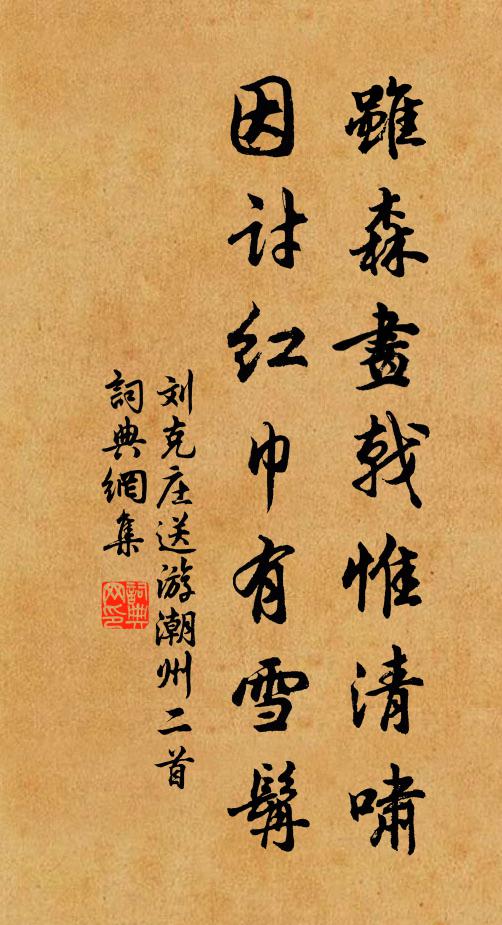 雖森畫戟惟清嘯
因討紅巾有雪髯
刘克庄送游潮州二首
詞典網集
詞典
网印